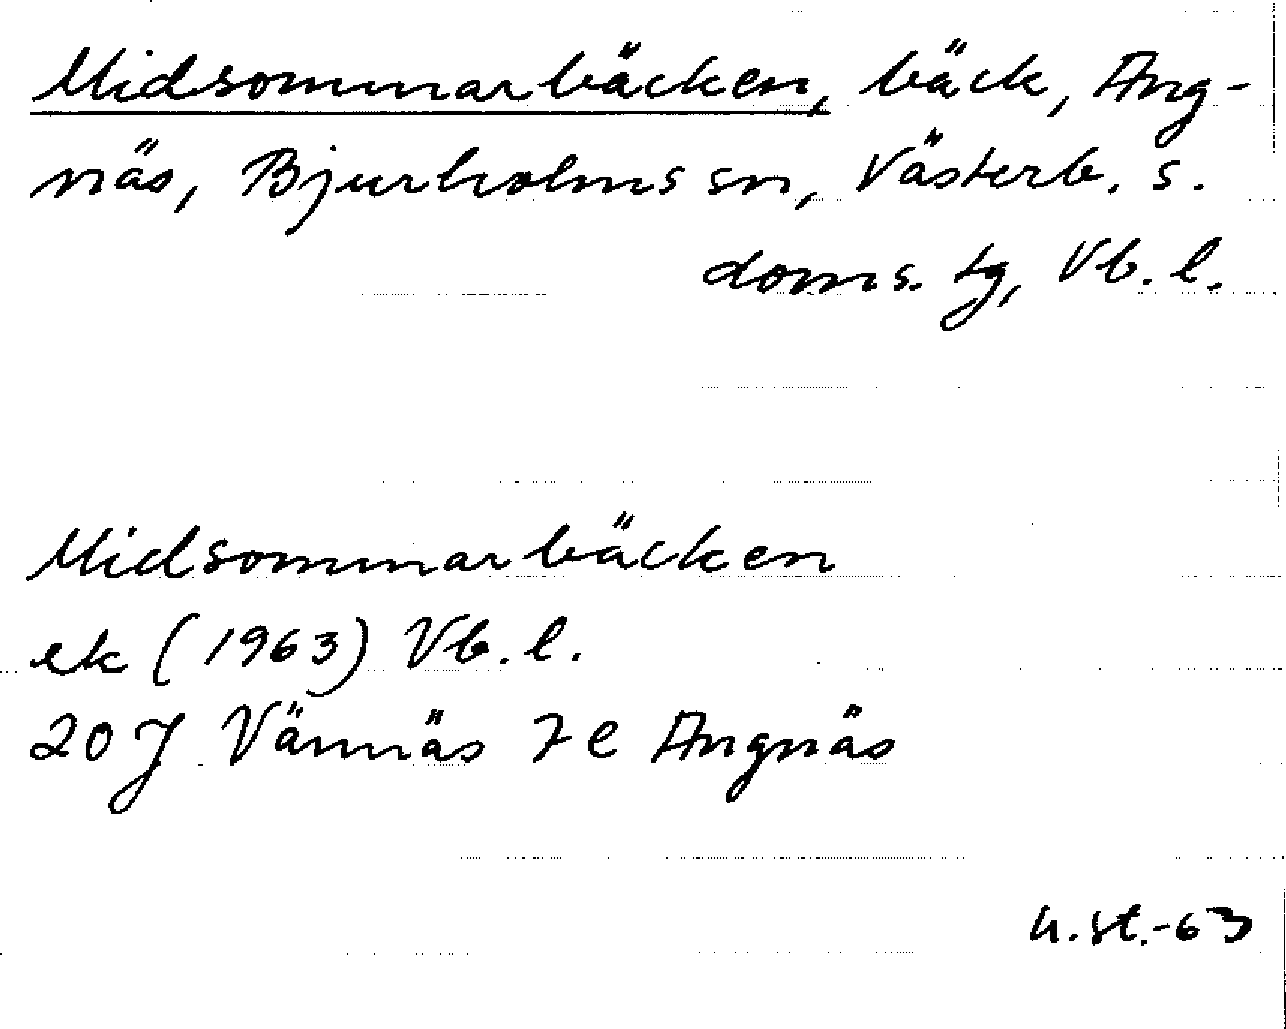 Midsommarbäcken, bäck, Ång-
näs, Bjurholms sn, Västerb. s.
doms. tg, Vb. l.
Midsommarbäcken
ek (1963) Vb. l.
20 J Vännäs 7 e Ångnäs
u.st.-63